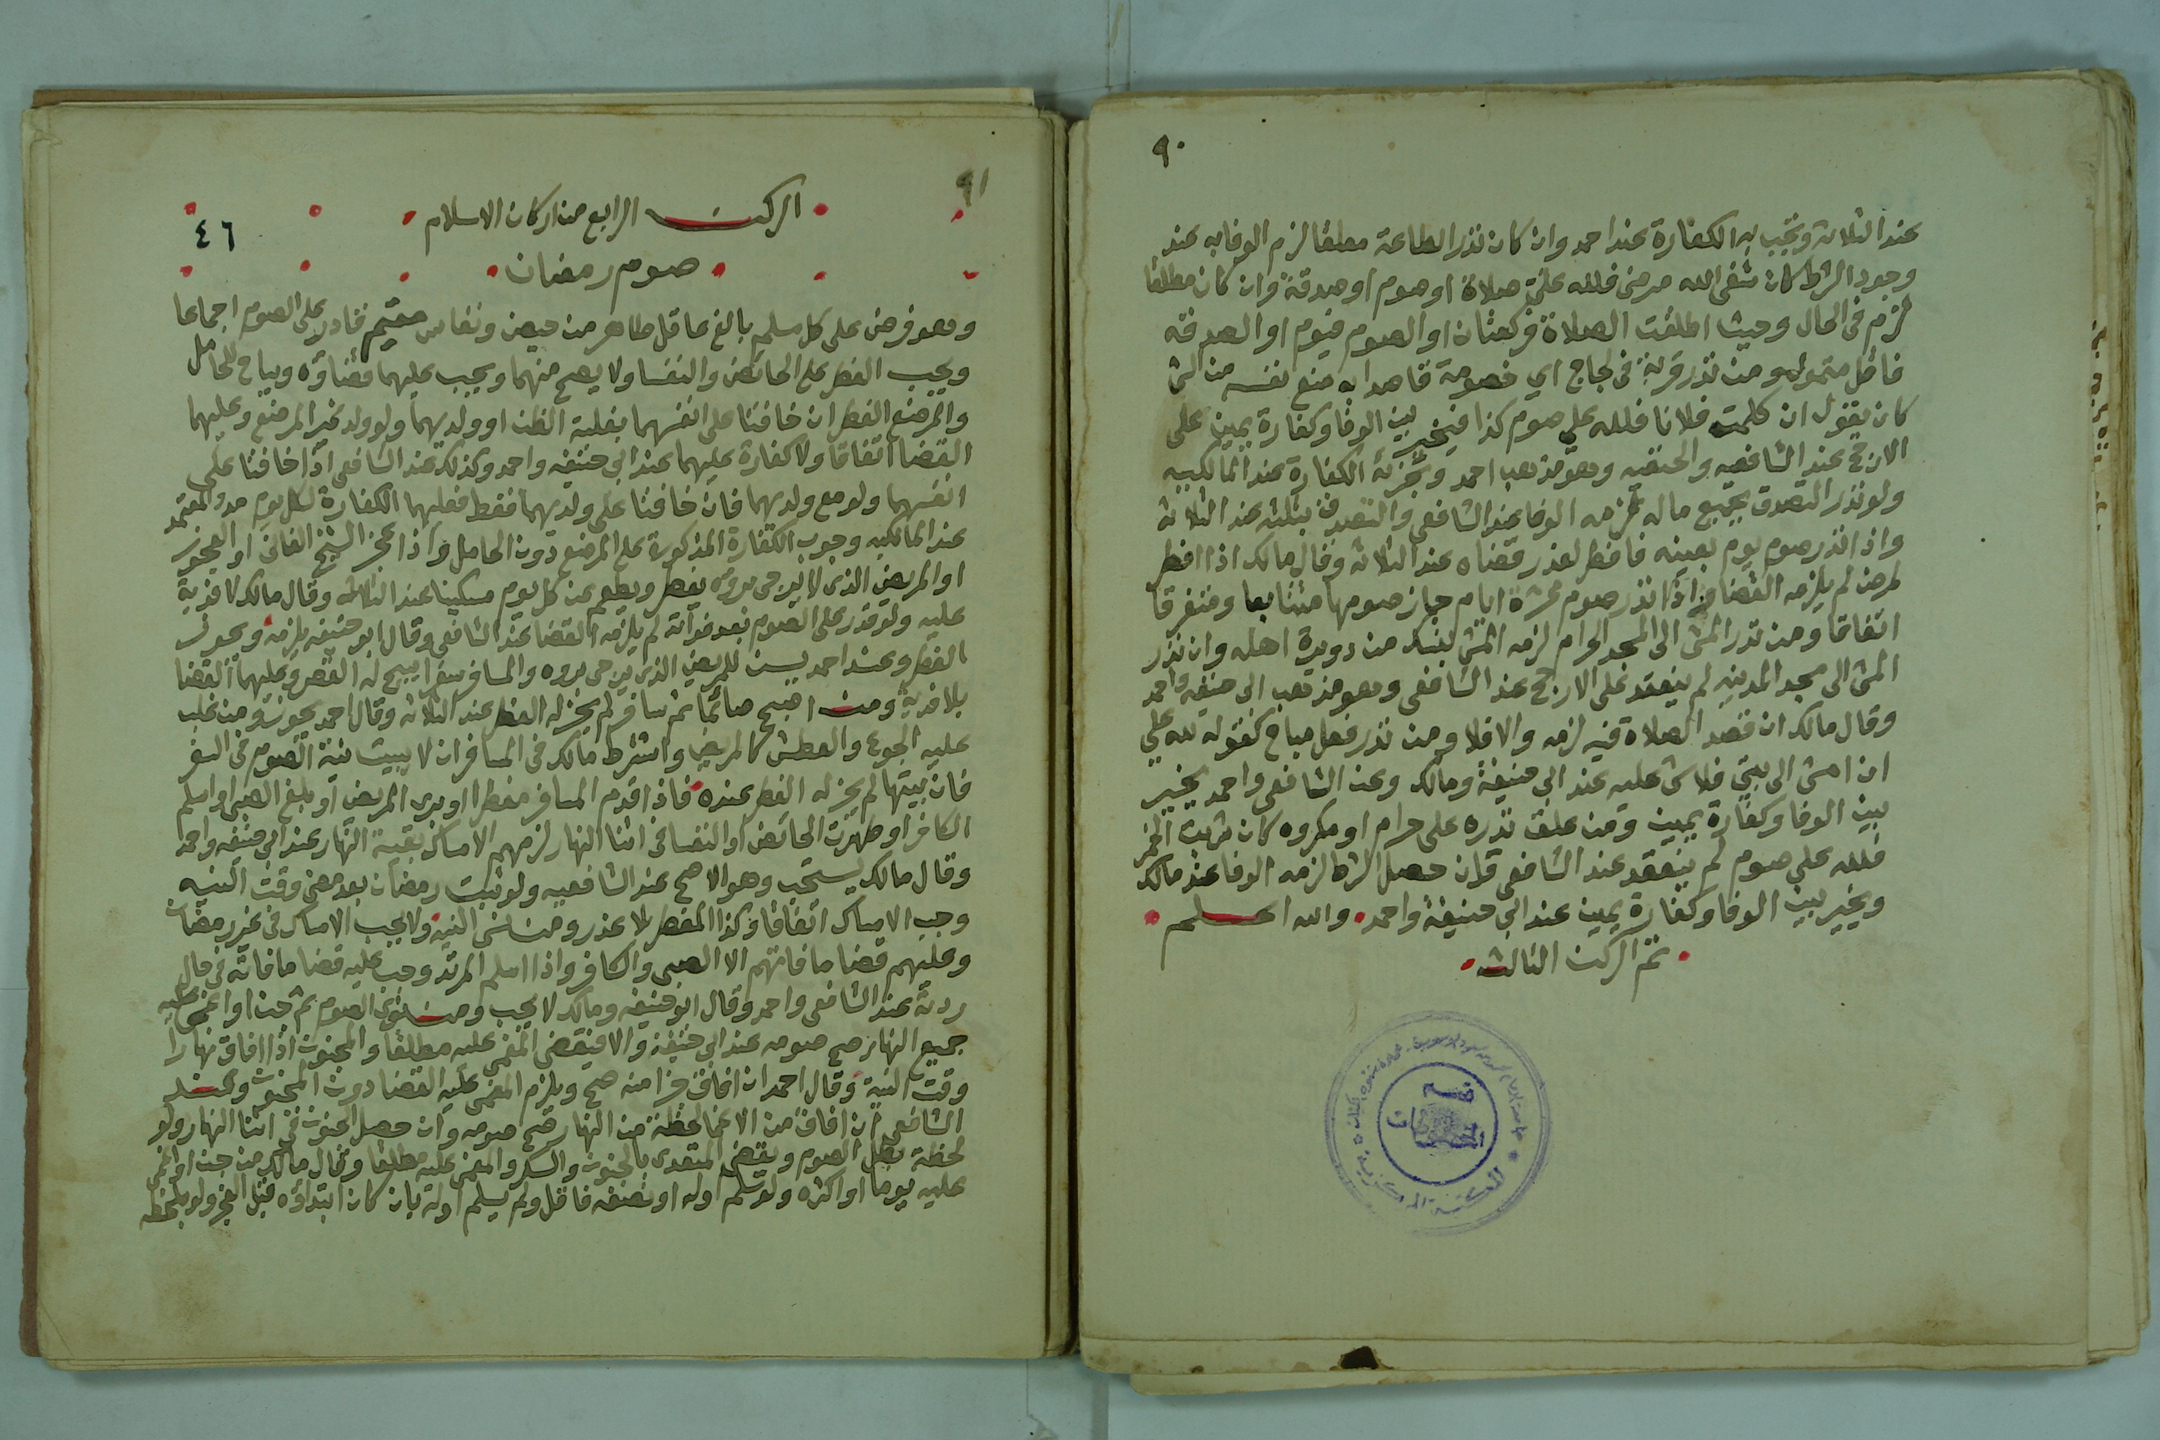 ٩٠
عند الثلاثة وتجب به الكفارة عند احمد وان كان نذر الطاعة معلقا لزم الوفا به عند
وجود الشرط كان شفى الله مرضى فلله علي صلاة او صوم او صدقة وان كان مطلقا
لزم فى الحال وحيث اطلقت الصلاة فركعتان او الصوم فيوم او الصدقه
فاقل متمول ومن نذر قربة فى لجاج اي خصومة قاصدا به منع نفسه من شى
كان يقول ان كلمت فلانا فلله علي صوم كذا فيخير بين الوفا وكفارة يمين على
الارجح عند الشافعيه والحنفيه وهو مذهب احمد وتجزئ الكفارة عند المالكيه
ولو نذر التصدق بجميع ماله لزمه الوفا عند الشافعى والتصدق بثلثه عند الثلاثه
واذا نذر صوم يوم بعينه فافطر لعذر قضاه عند الثلاثه وقال مالك اذا افطر
لمرض لم يلزمه القضا واذا نذر صوم عشرة ايام جاز صومها متتابعا ومتفرقا
اتفاقا ومن نذر المشى الى المسجد الحرام لزمه المشى بنسك من دويرة اهله وان نذر
المشى الى مسجد المدينه لم ينعقد على الارجح عند الشافعى وهو مذهب ابى حنيفه واحمد
وقال مالك ان قصد الصلاة فيه لزمه والا فلا ومن نذر فعل مباح كقوله لله علي
ان امشى الى بيتى فلا شى عليه عند ابى حنيفة ومالك وعن الشافعى واحمد يخير
بين الوفا وكفارة يمين ومن علق نذره على حرام او مكروه كان شربت الخمر
فلله علي صوم لم ينعقد عند الشافعى فان حصل الشرط لزمه الوفا عند مالك
ويخير بين الوفا وكفارة يمين عند ابى حنيفة واحمد والله اعلم
تم الركن الثالث
المكتبة المركزية
قسم
المخطوطات
٩١
٤٦
الركن الرابع من اركان الاسلام
صوم رمضان
وهو فرض على كل مسلم بالغ عاقل طاهر من حيض ونفاس مقيم قادر على الصوم اجماعا
ويجب الفطر على الحائض والنفسا ولا يصح منهما ويجب عليهما قضاؤه ويباح للحامل
والمرضع الفطر ان خافتا على انفسهما بغلبة الظن او ولديهما ولو ولد غير المرضع وعليهما
القضا اتفاقا ولا كفارة عليهما عند ابى حنيفه واحمد وكذلك عند الشافعى اذا خافتا على
انفسهما ولو مع ولديهما فان خافتا على ولديهما فقط فعليهما الكفارة لكل يوم مد والمعتمد
عند المالكيه وجوب الكفارة المذكورة على المرضع دون الحامل واذا عجز الشيخ الفانى او العجوز
او المريض الذى لا يرجى بروه يفطر ويطعم عن كل يوم مسكينا عند الثلاثه وقال مالك لا فدية
عليه ولو قدر على الصوم بعد فواته لم يلزمه القضا عند الشافعى وقال ابو حنيفه يلزمه ويجوز
الفطر وعند احمد يسن للمريض الذى يرجى بروه والمسافر سفرا يبيح له القصر وعليهما القضا
بلا فدية ومن اصبح صائما ثم سافر لم يجز له الفطر عند الثلاثه وقال احمد يجوز ومن غلب
عليه الجوع والعطش كالمريض واشترط مالك فى المسافر ان لا يبيت نية الصوم فى السفر
فان بيتها لم يجز له الفطر عنده فاذا قدم المسافر مفطرا او برى المريض او بلغ الصبى او اسلم
الكافر او طهرت الحائض او النفسا فى اثنا النهار لزمهم الامساك بقية النهار عند ابى حنيفه واحمد
وقال مالك يستحب وهو الاصح عند الشافعيه ولو ثبت رمضان بعد مضى وقت النيه
وجب الامساك اتفاقا وكذا المفطر بلا عذر ومن نسى النية ولا يجب الامساك فى غير رمضان
وعليهم قضا ما فاتهم الا الصبى والكافر واذا اسلم المرتد وجب عليه قضا ما فاته فى حال
ردته عند الشافعى واحمد وقال ابو حنيفه ومالك لا يجب ومن نوى الصوم ثم جن او اغمى عليه
جميع النهار صح صومه عند ابى حنيفة والا فيقضى المغمى عليه مطلقا والمجنون اذا افاق نهارا
وقت النية وقال احمد ان افاق جزا منه صح ويلزم المغمى عليه القضا دون المجنون وعند
الشافعى ان افاق من الاغما لحظة من النهار صح صومه وان حصل الجنون فى اثنا النهار ولو
لحظة بطل الصوم ويقضى المتعدى بالجنون والسكر والمغمى عليه مطلقا وقال مالك من جن او اغمى
عليه يوما او اكثره ولو سلم اوله او نصفه فاقل ولم يسلم اوله بان كان ابتداؤه قبل الفجر ولو بلحظه